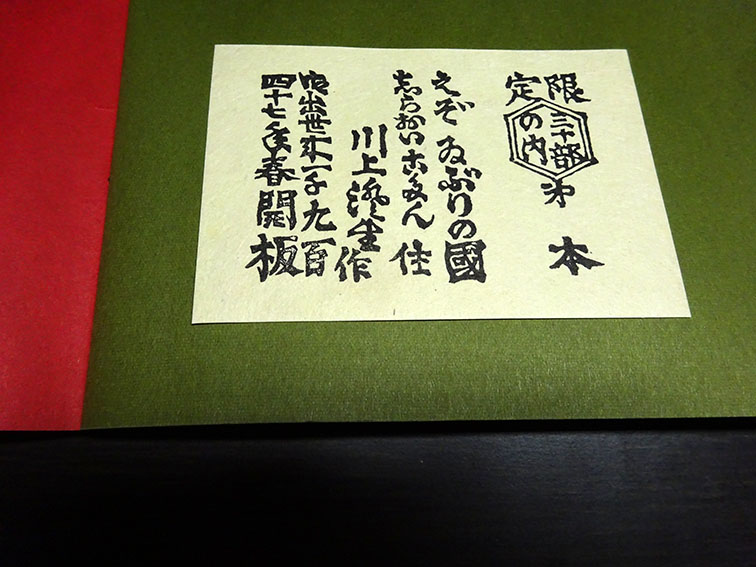 限定
三十部
の内
第 本
えぞ ゐぶりの國
志らおいこたん 住
川上澄生作
御出世以来一千九百
四十七年春開板